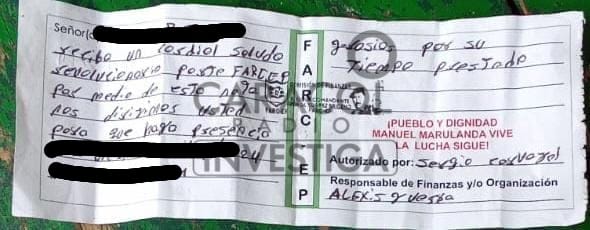 Señor(a
reciba un Cordial Saludo
revolucionario parte FARCEP
por medio de esta nota
nos dirigimos usted
para que haga presencia
24
FARC EP
COMISIÓN DE FINANZAS
COMANDANTE
gracias por su
Tiempo prestado
¡PUEBLO Y DIGNIDAD
MANUEL MARULANDA VIVE
LA LUCHA SIGUE!
Autorizado por: Sergio carvajal
Responsable de Finanzas y/o Organización
ALEXIS
CARACOL
RADIO
INVESTIGA